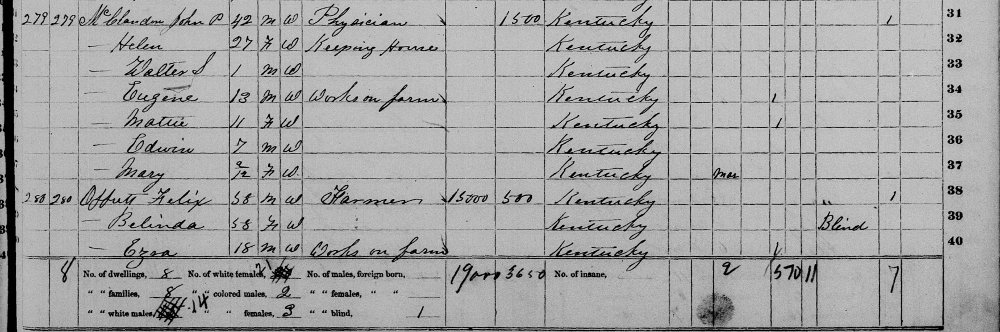 279 279 McClandon John P 42 M W Physician 1500 Kentucky 1 31
— Helen 27 F W Keeping House Kentucky 32
— Walter S 1 M W Kentucky 33
— Eugene 13 M W Works on farm Kentucky 1 34
— Mattie 11 F W Kentucky 1 35
— Edwin 7 M W Kentucky 36
— Mary 2/12 F W Kentucky Mar 37
280 280 Offutt Felix 58 M W Farmer 15000 500 Kentucky " 1 38
— Belinda 58 F W Kentucky Blind 39
— Ezra 18 M W Works on farm Kentucky 1 40
8 No. of dwellings, 8 No. of white females, 21 No. of males, foreign born, 19000 3650 No. of insane, 2 1 5 70 11 7
" " families, 8 " " colored males, 2 " " females, " "
" " white males, 14 " " females, 3 " " blind, 1